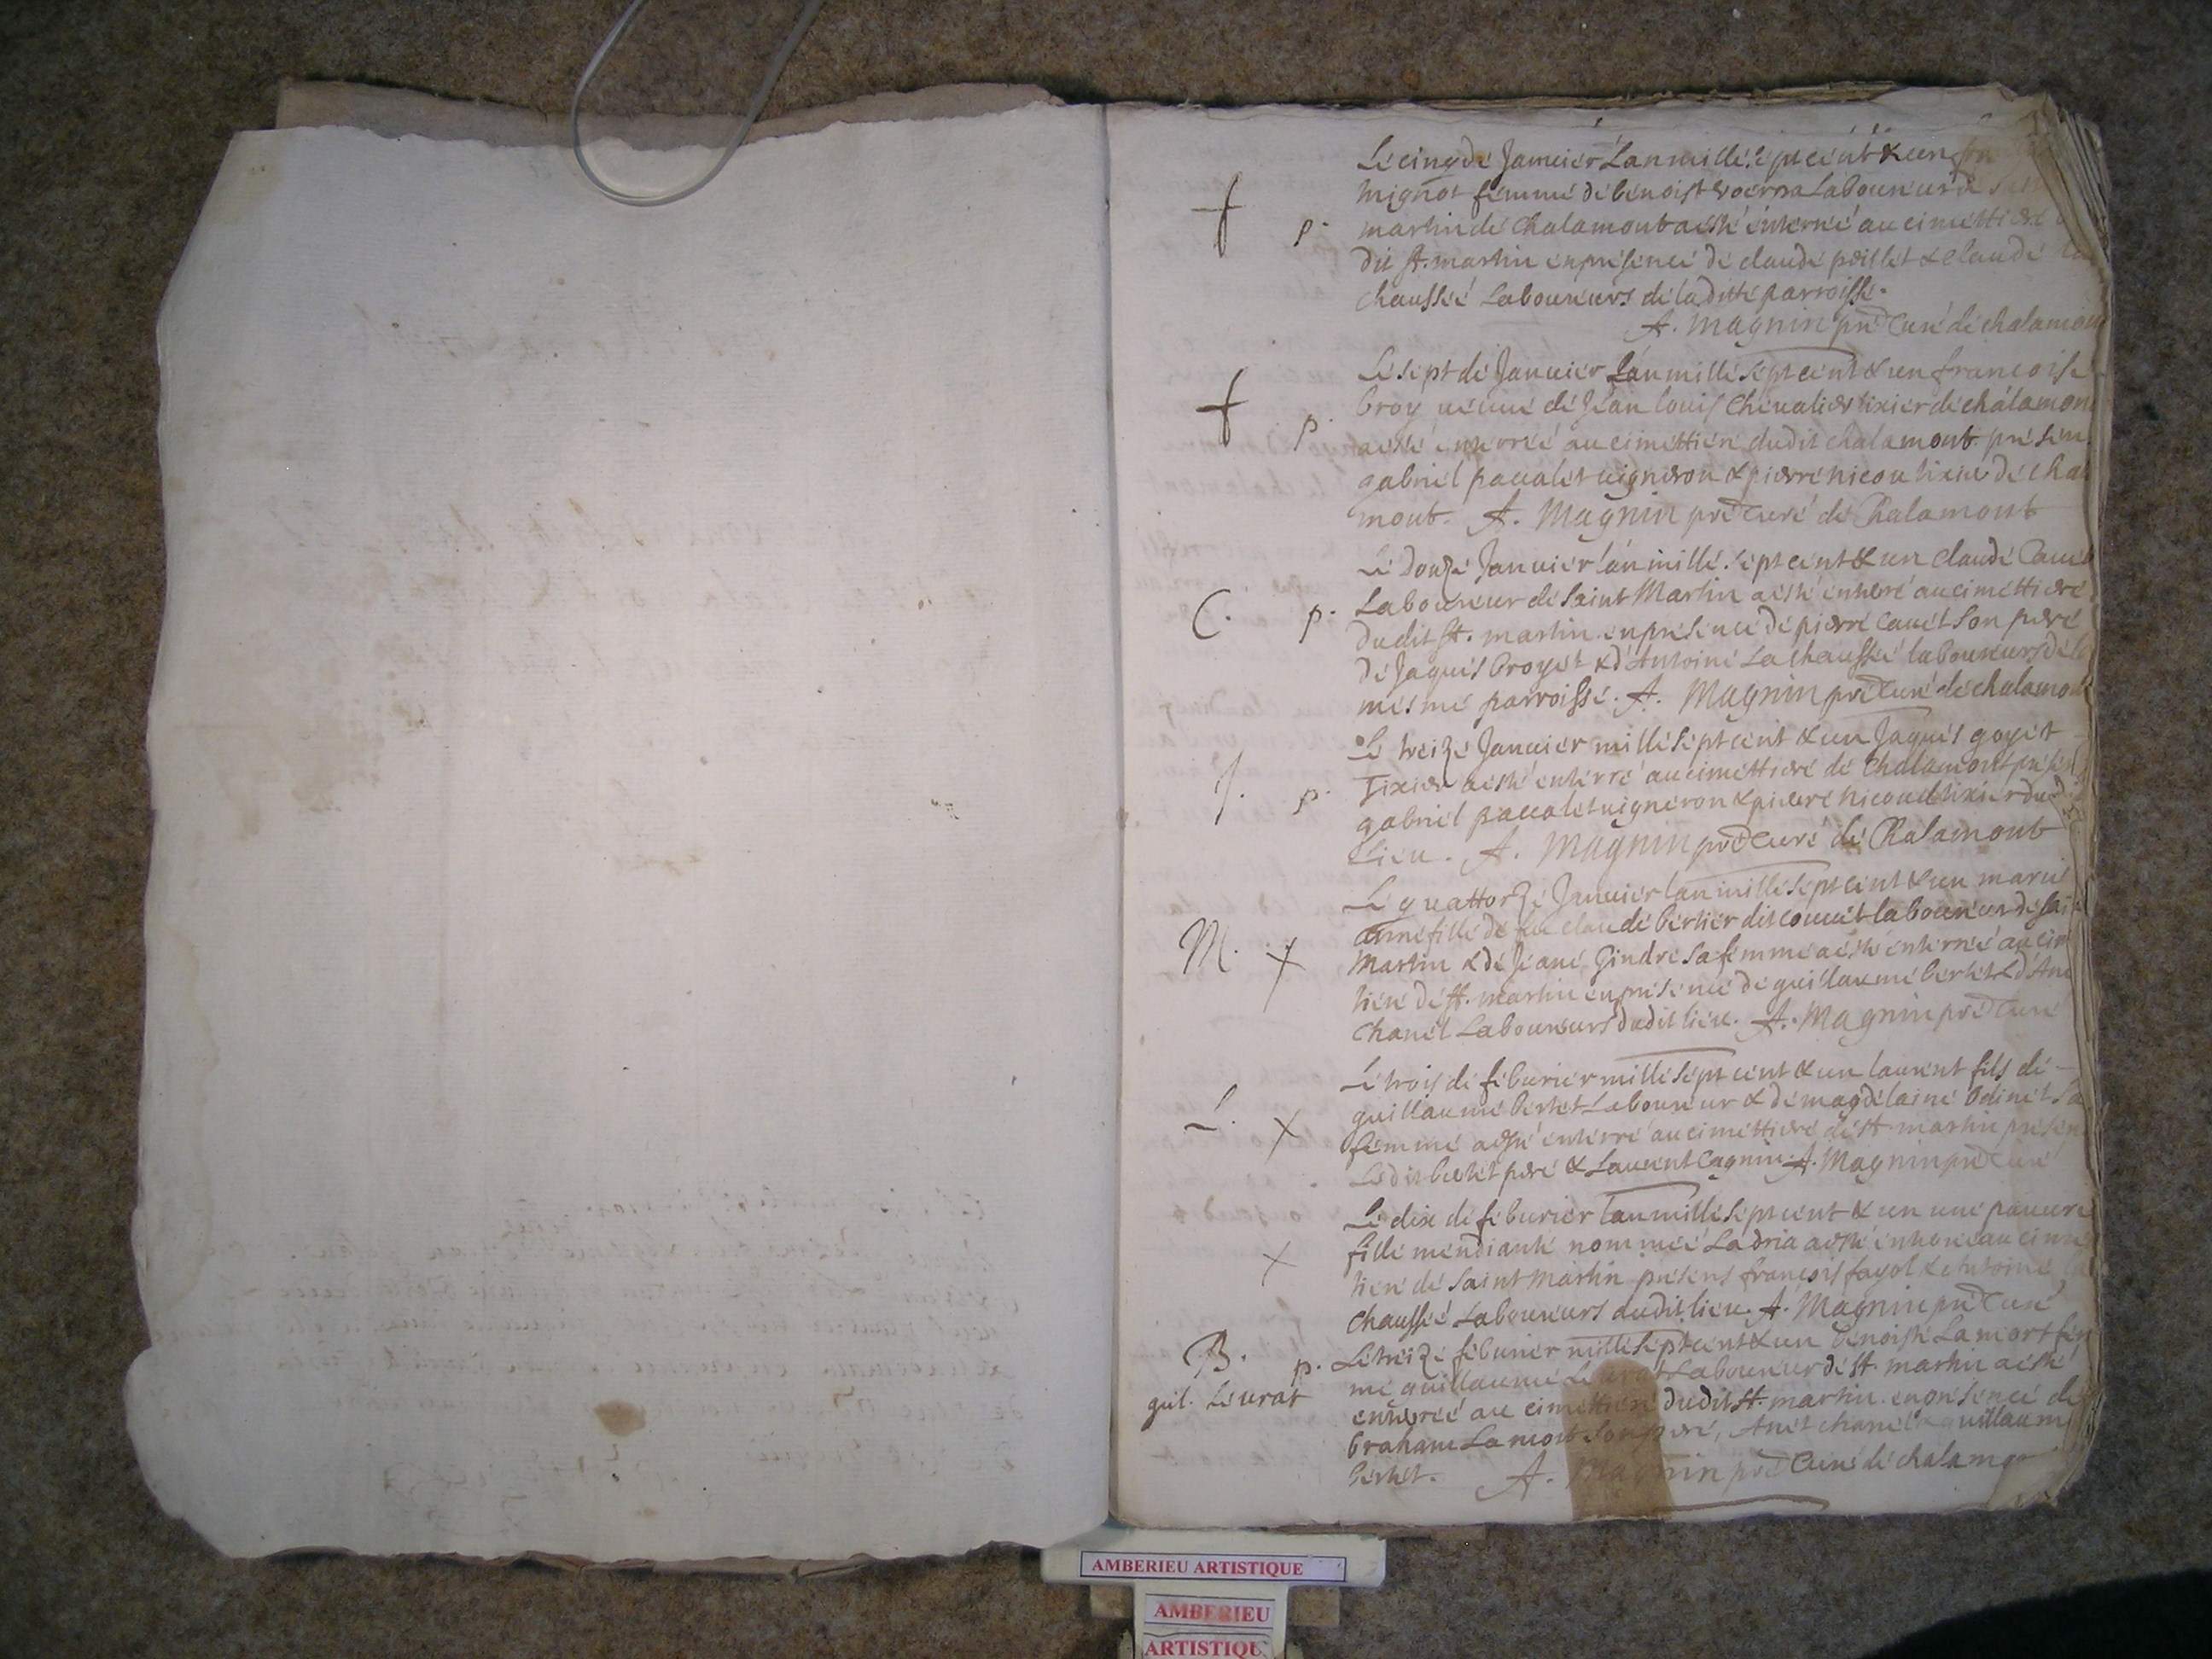 Le cinq de Januier Lan mille sept cent & un
mignot femme de benoist Laboureur de
p. martin de Chalamont a esté enterreé au cimettiere
dit st. martin en presence de claude poillet & Claude la
chausseé Laboureurs de la ditte parroisse.
A. Magnin pre Curé de chalamon
Le sept de Januier Lan mille sept cent & un francoise
broy ueuue de Jean louis Cheualier tixier de chalamon
p. a esté enterreé au cimettiere dudit chalamont presen
gabriel paccalet uigneron & pierre nicou tixier de chal
mont. A. Magnin pre Curé de Chalamont
Le douze Januier lan mille sept cent & un Claude Cauet
C. p. Laboureur de Saint Martin a esté enterré au cimettiere
dudit st. martin en presence de pierre Cauet son pere
de Jaques broyet & d'Antoine La chausseé laboureurs de la
mesme parroisse. A. Magnin pre Curé de chalamon
Le treize Januier mille sept cent & un Jaques goyet
J. p. Tixier a esté enterré au cimettiere de Chalamont presen
gabriel paccalet uigneron & pierre nicoud tixier dudit
Lieu. A. Magnin pre Curé de Chalamont
Le quattorze Januier lan mille sept cent & un marie
anne fille de feu claude bertier dit couuet laboureur de sai
M. Martin & de Jeane Gindre sa femme a esté enterreé au cim
tiere de st. martin en presence de guillaume bertet & d'An
Chanel Laboureurs dudit lieu. A. Magnin pre Curé
Le trois de feburier mille sept cent & un laurent fils de
L. guillaume bertet Laboureur & de magdelaine bolinet sa
femme a esté enterré au cimettiere de st martin presen
Ledit bertet pere & Laurent Cagnin. A. Magnin pre Curé
Le dix de feburier lan mille sept cent & un une pauure
fille mendiante nommeé Ladria a esté enterreé au cime
tiere de saint martin presens francois fayol & Antoine la
chausseé Laboureurs dudit lieu. A. Magnin pre Curé
B. p. Le treize feburier mille sept cent & un benoiste Lamort fem
gul. Leurat me guillaume Leurat Laboureur de st. martin a esté
enterreé au cimettiere dudit st. martin en presence de
braham Lamort son pere, Anet chanel & guillaume
bertet. A. Magnin pre Curé de chalamon
AMBERIEU ARTISTIQUE
AMBERIEU
ARTISTIQU